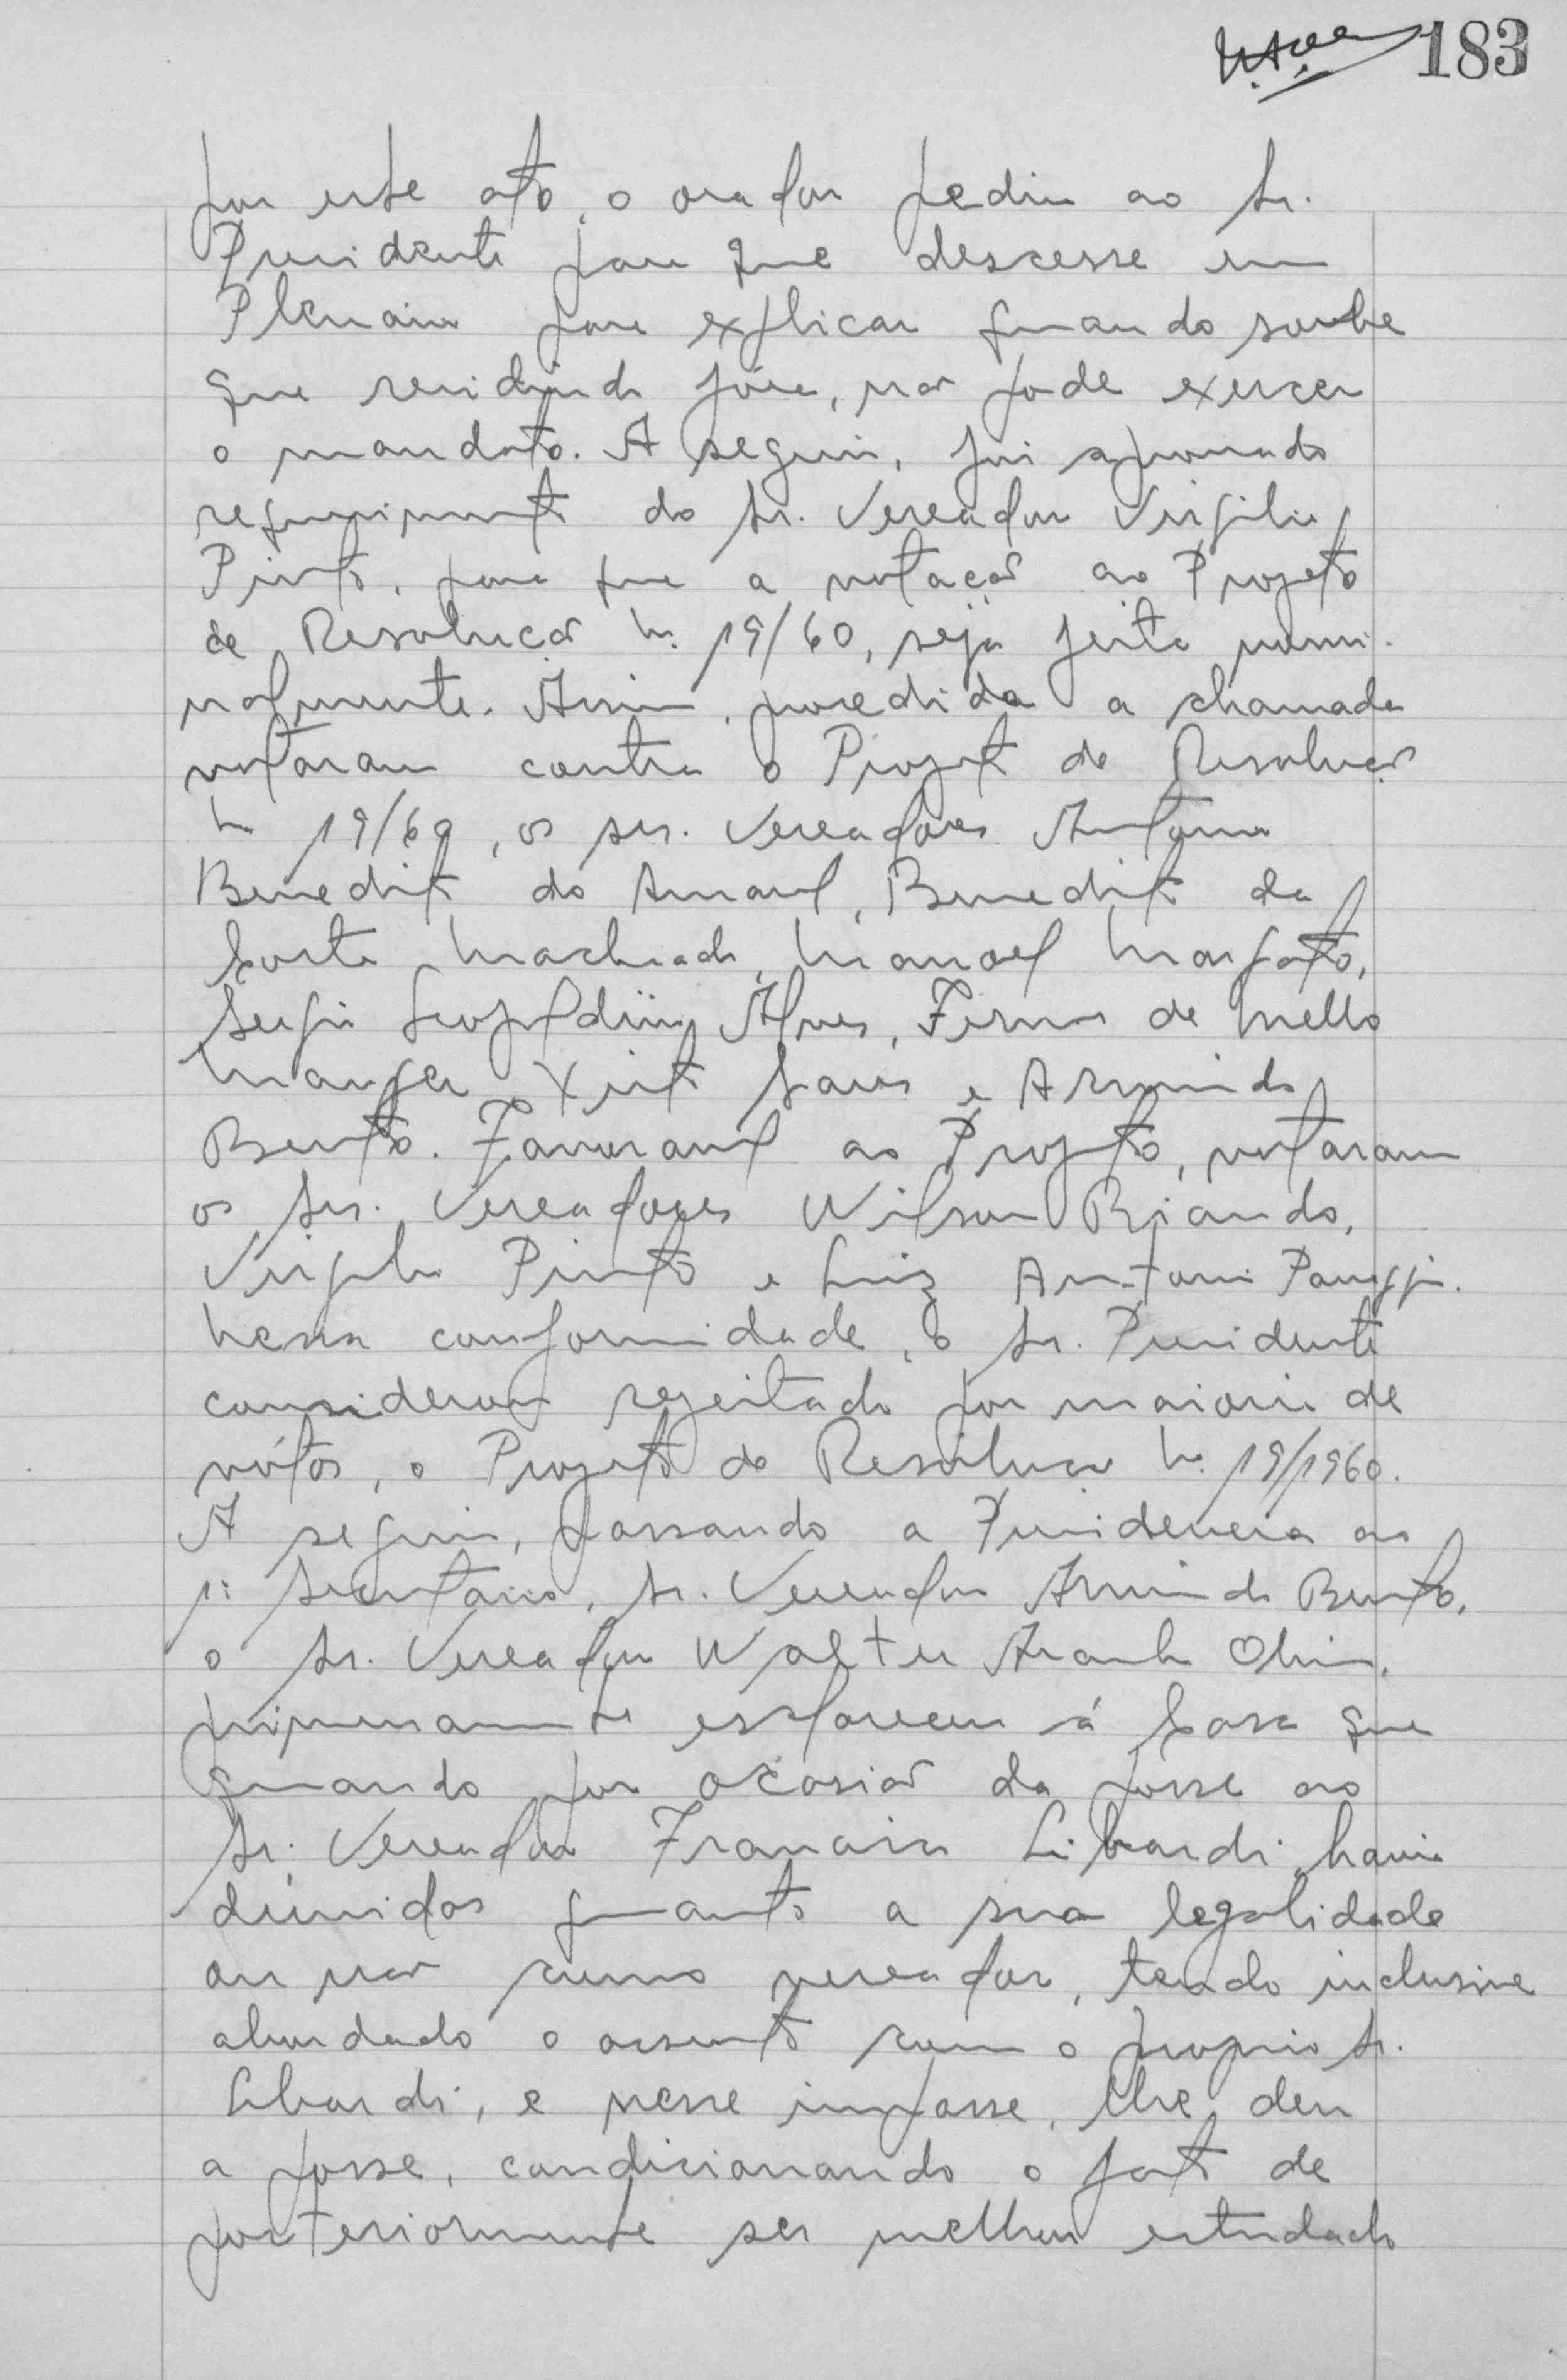 183
por este ato, o orador pediu ao Sr.
Presidente para que descesse em
Plenário para explicar quando soube
que residindo fóra, não pode exercer
o mandato. A seguir, foi aprovado
requerimento do Sr. Vereador Virgilio
Pinto, para que a votação ao Projeto
de Resolução n. 19/60, seja feita nomi-
nalmente. Assim, procedida a chamada
votaram contra o Projeto de Resolução
n 19/60, os srs. Vereadores Antonio
Benedito do Amaral, Benedito da
Costa Machado, Manoel Morgato,
Sergio Leopoldino Alves, Firmo de Mello
Xisto Soares e Armindo
Bento. Favoravel ao Projeto, votaram
os Srs. Vereadores Wilson Brando,
Virgilio Pinto e Luiz Antonio
Nessa conformidade, o Sr. Presidente
considerou rejeitado por maioria de
vótos, o Projeto de Resolução n. 19/1960.
A seguir, passando a Presidencia ao
1º Secretario, Sr. Vereador Armindo Bento,
o Sr. Vereador Walter Aranha
primeiramente esclareceu á Casa que
quando por ocasião da posse ao
Sr. Vereador Francisco Libardi havia
duvidas quanto a sua legalidade
ou não como vereador, tendo inclusive
abordado o assunto com o proprio Sr.
Libardi, e nesse impasse, lhe deu
a posse, condicionando o fato de
posteriormente ser melhor estudado